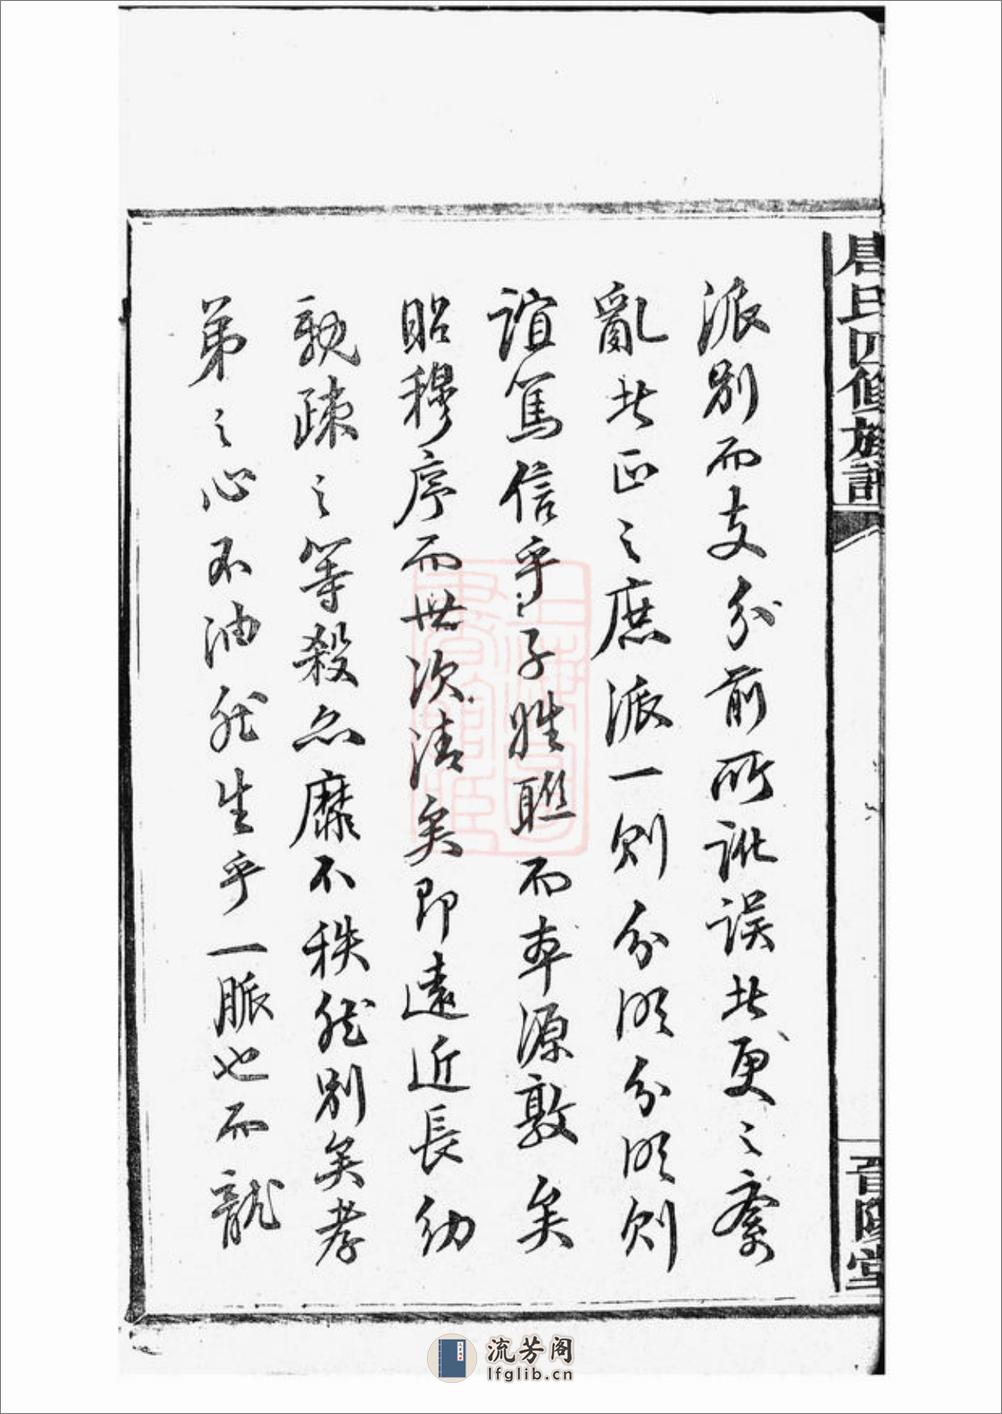 唐氏四修族譜
晉陽堂
派別而支分前所訛誤者更之紊
亂者正之庶派一則分明分明則
誼篤信乎子姓聯而本源敦矣
昭穆序而世次清矣即遠近長幼
親疎之等殺亦靡不秩然別矣孝
弟之心不油然生乎一脈也而龍
流芳阁
lfglib.cn